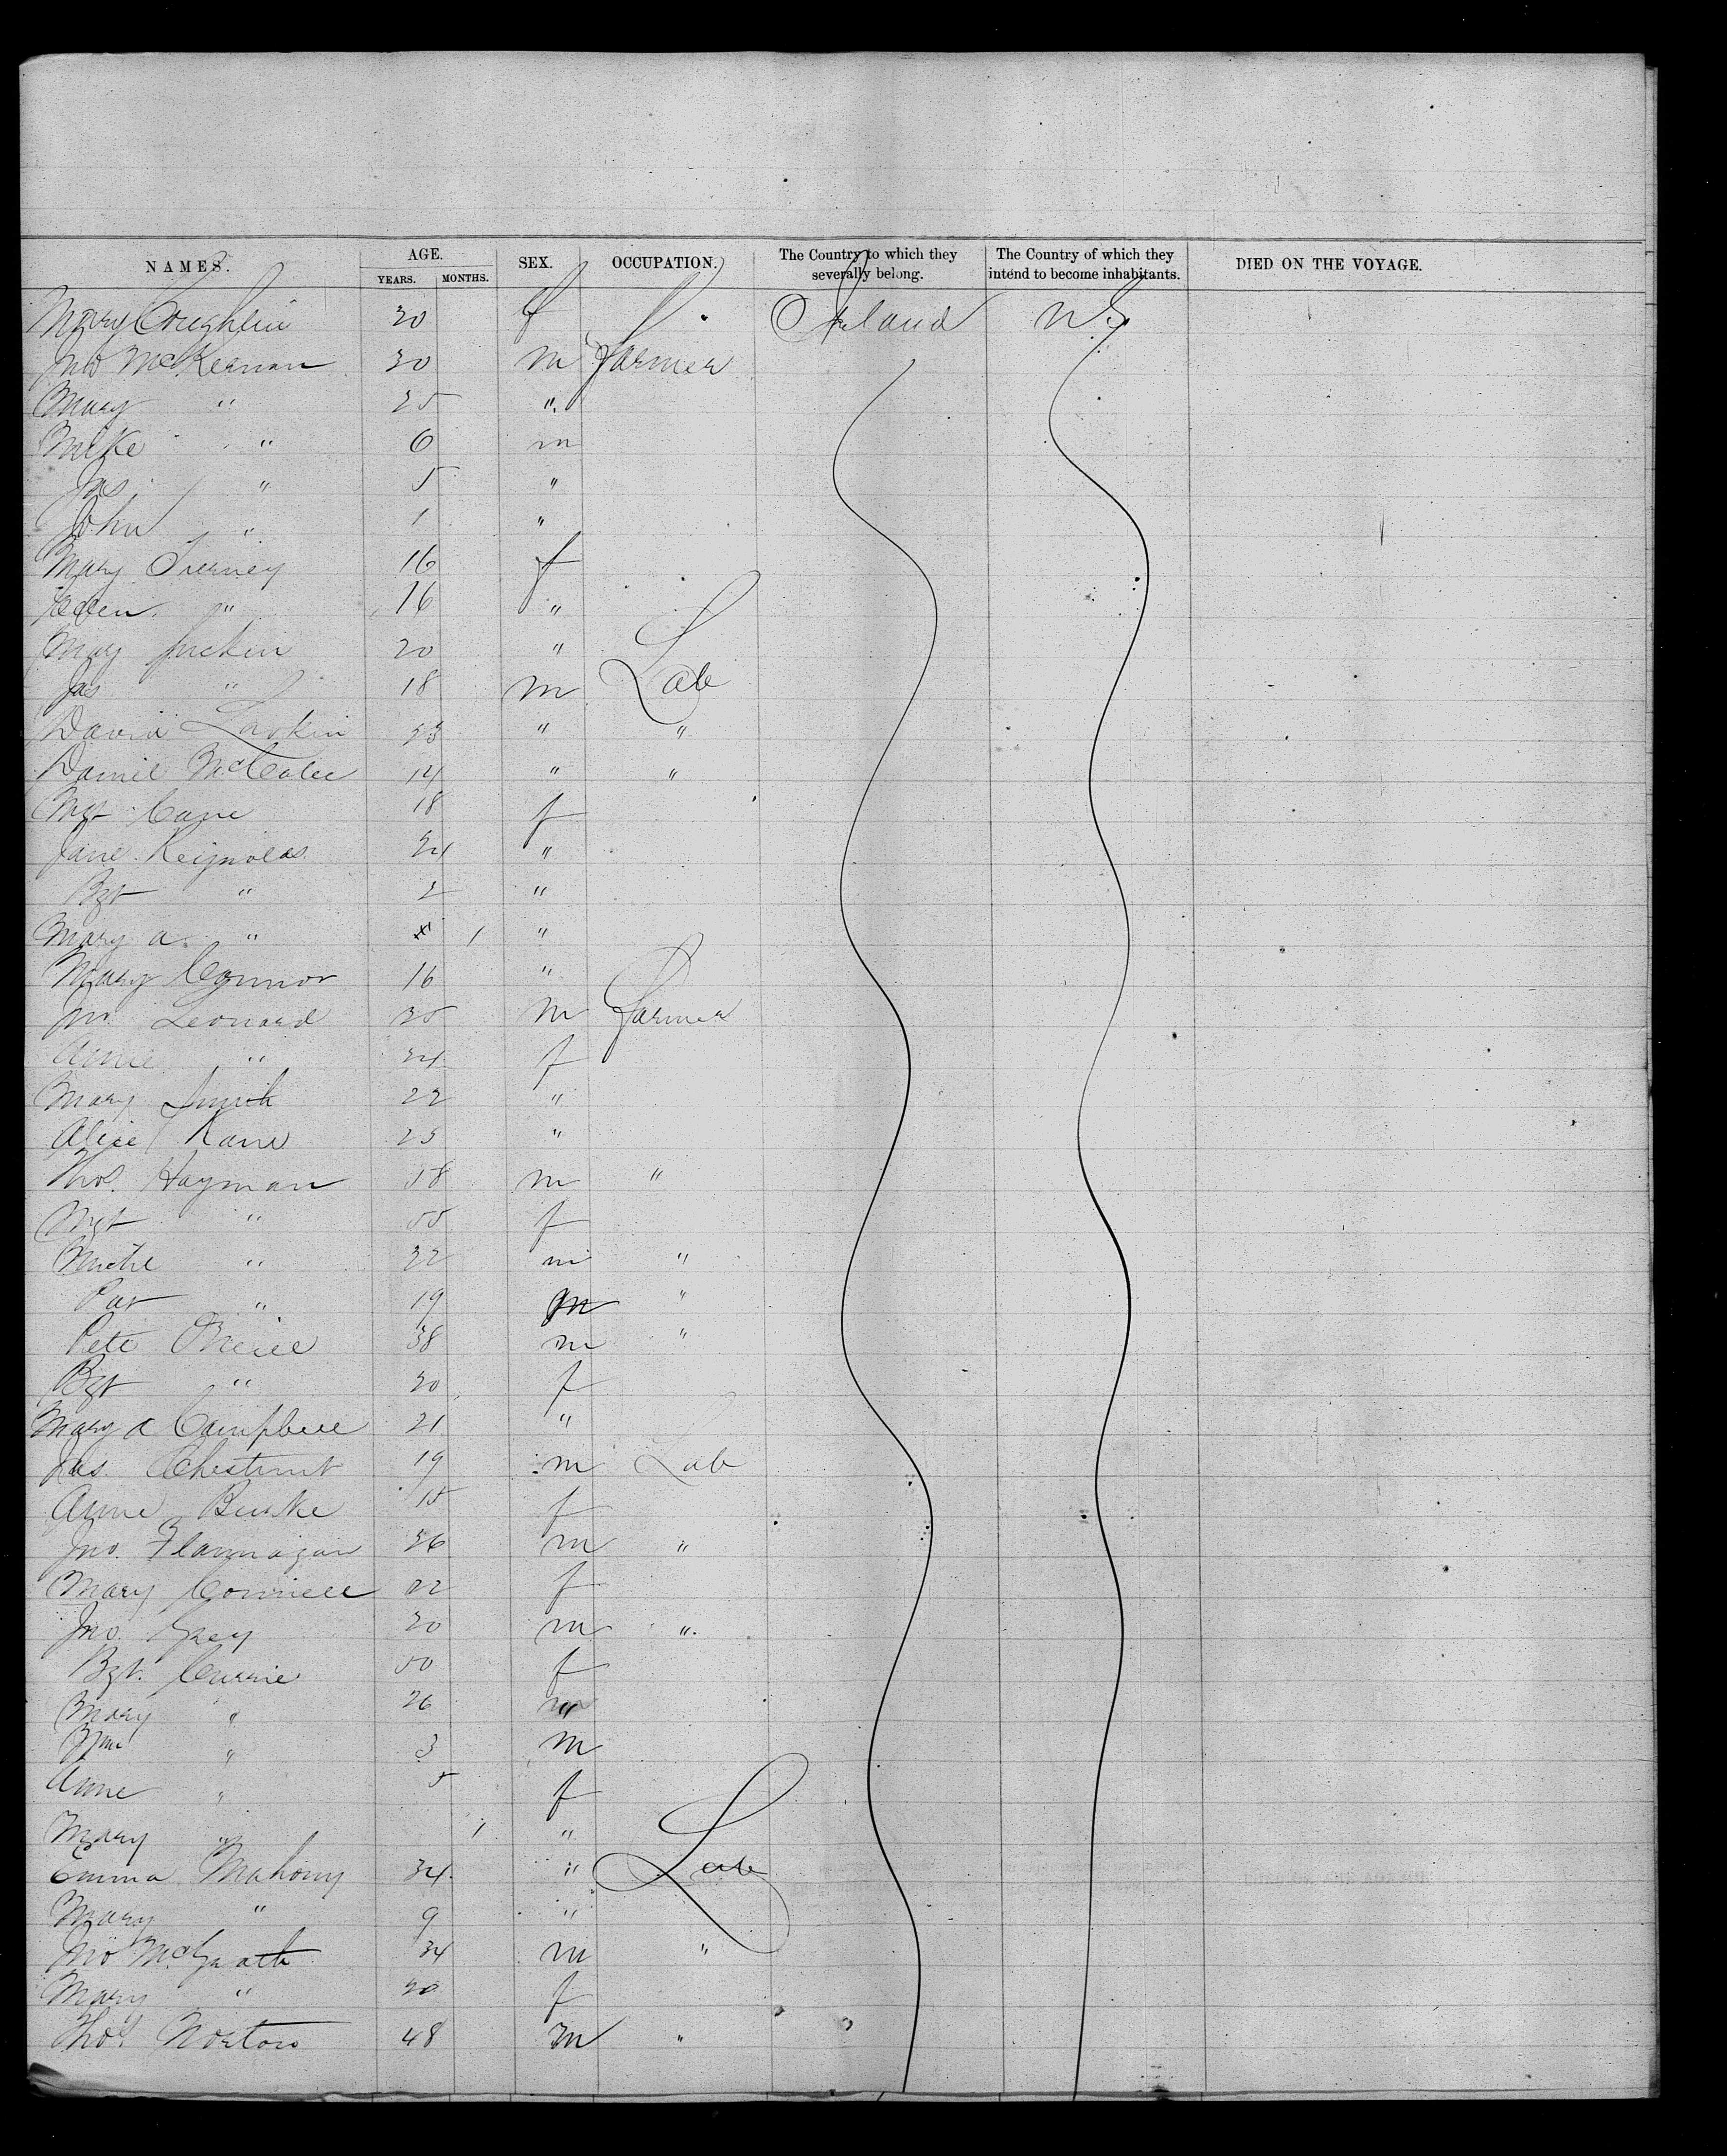 NAMES. AGE. SEX. OCCUPATION. The Country to which they severally belong. The Country of which they intend to become inhabitants. DIED ON THE VOYAGE.
YEARS. MONTHS.
Mary Coughlin 20 f Ireland
Jno McKernan 30 m Farmer
Mary " 25 "
Mike " 6 m
Jas. " 5 "
John " 1 "
Mary Tierney 16 f
Ellen " 16 "
Mary 20 "
Jas " 18 m Lab
David Larkin 23 " "
14 " "
Mgt Cane 18 f
Jane Reignolds 24 "
Bgt " 2 "
Mary a " 1 "
Mary Connor 16 "
Jno Leonard 35 m Farmer
Anne " 24 f
Mary Smith 22 "
Alice Kane 23 "
Thos. Hayman 58 m "
Mgt " 55 f
Michl " 22 m "
Pat " 19 m "
Pete O'Neill 38 m "
Bgt " 20 f
Mary a Campbell 21 "
Jas. Chestnut 19 m Lab
Anne Burke 15 f
Jno. Flannagan 26 m "
Mary Connell 22 f
Jno. Grey 20 m "
Bgt. Currie 50 f
Mary " 26 "
Wm " 3 m
Anne " 5 f
Mary " 1 "
Emma Mahony 34 " Lab
Mary " 9 "
Jno McGrath 34 m "
Mary " 20 f
Thos Norton 48 m "